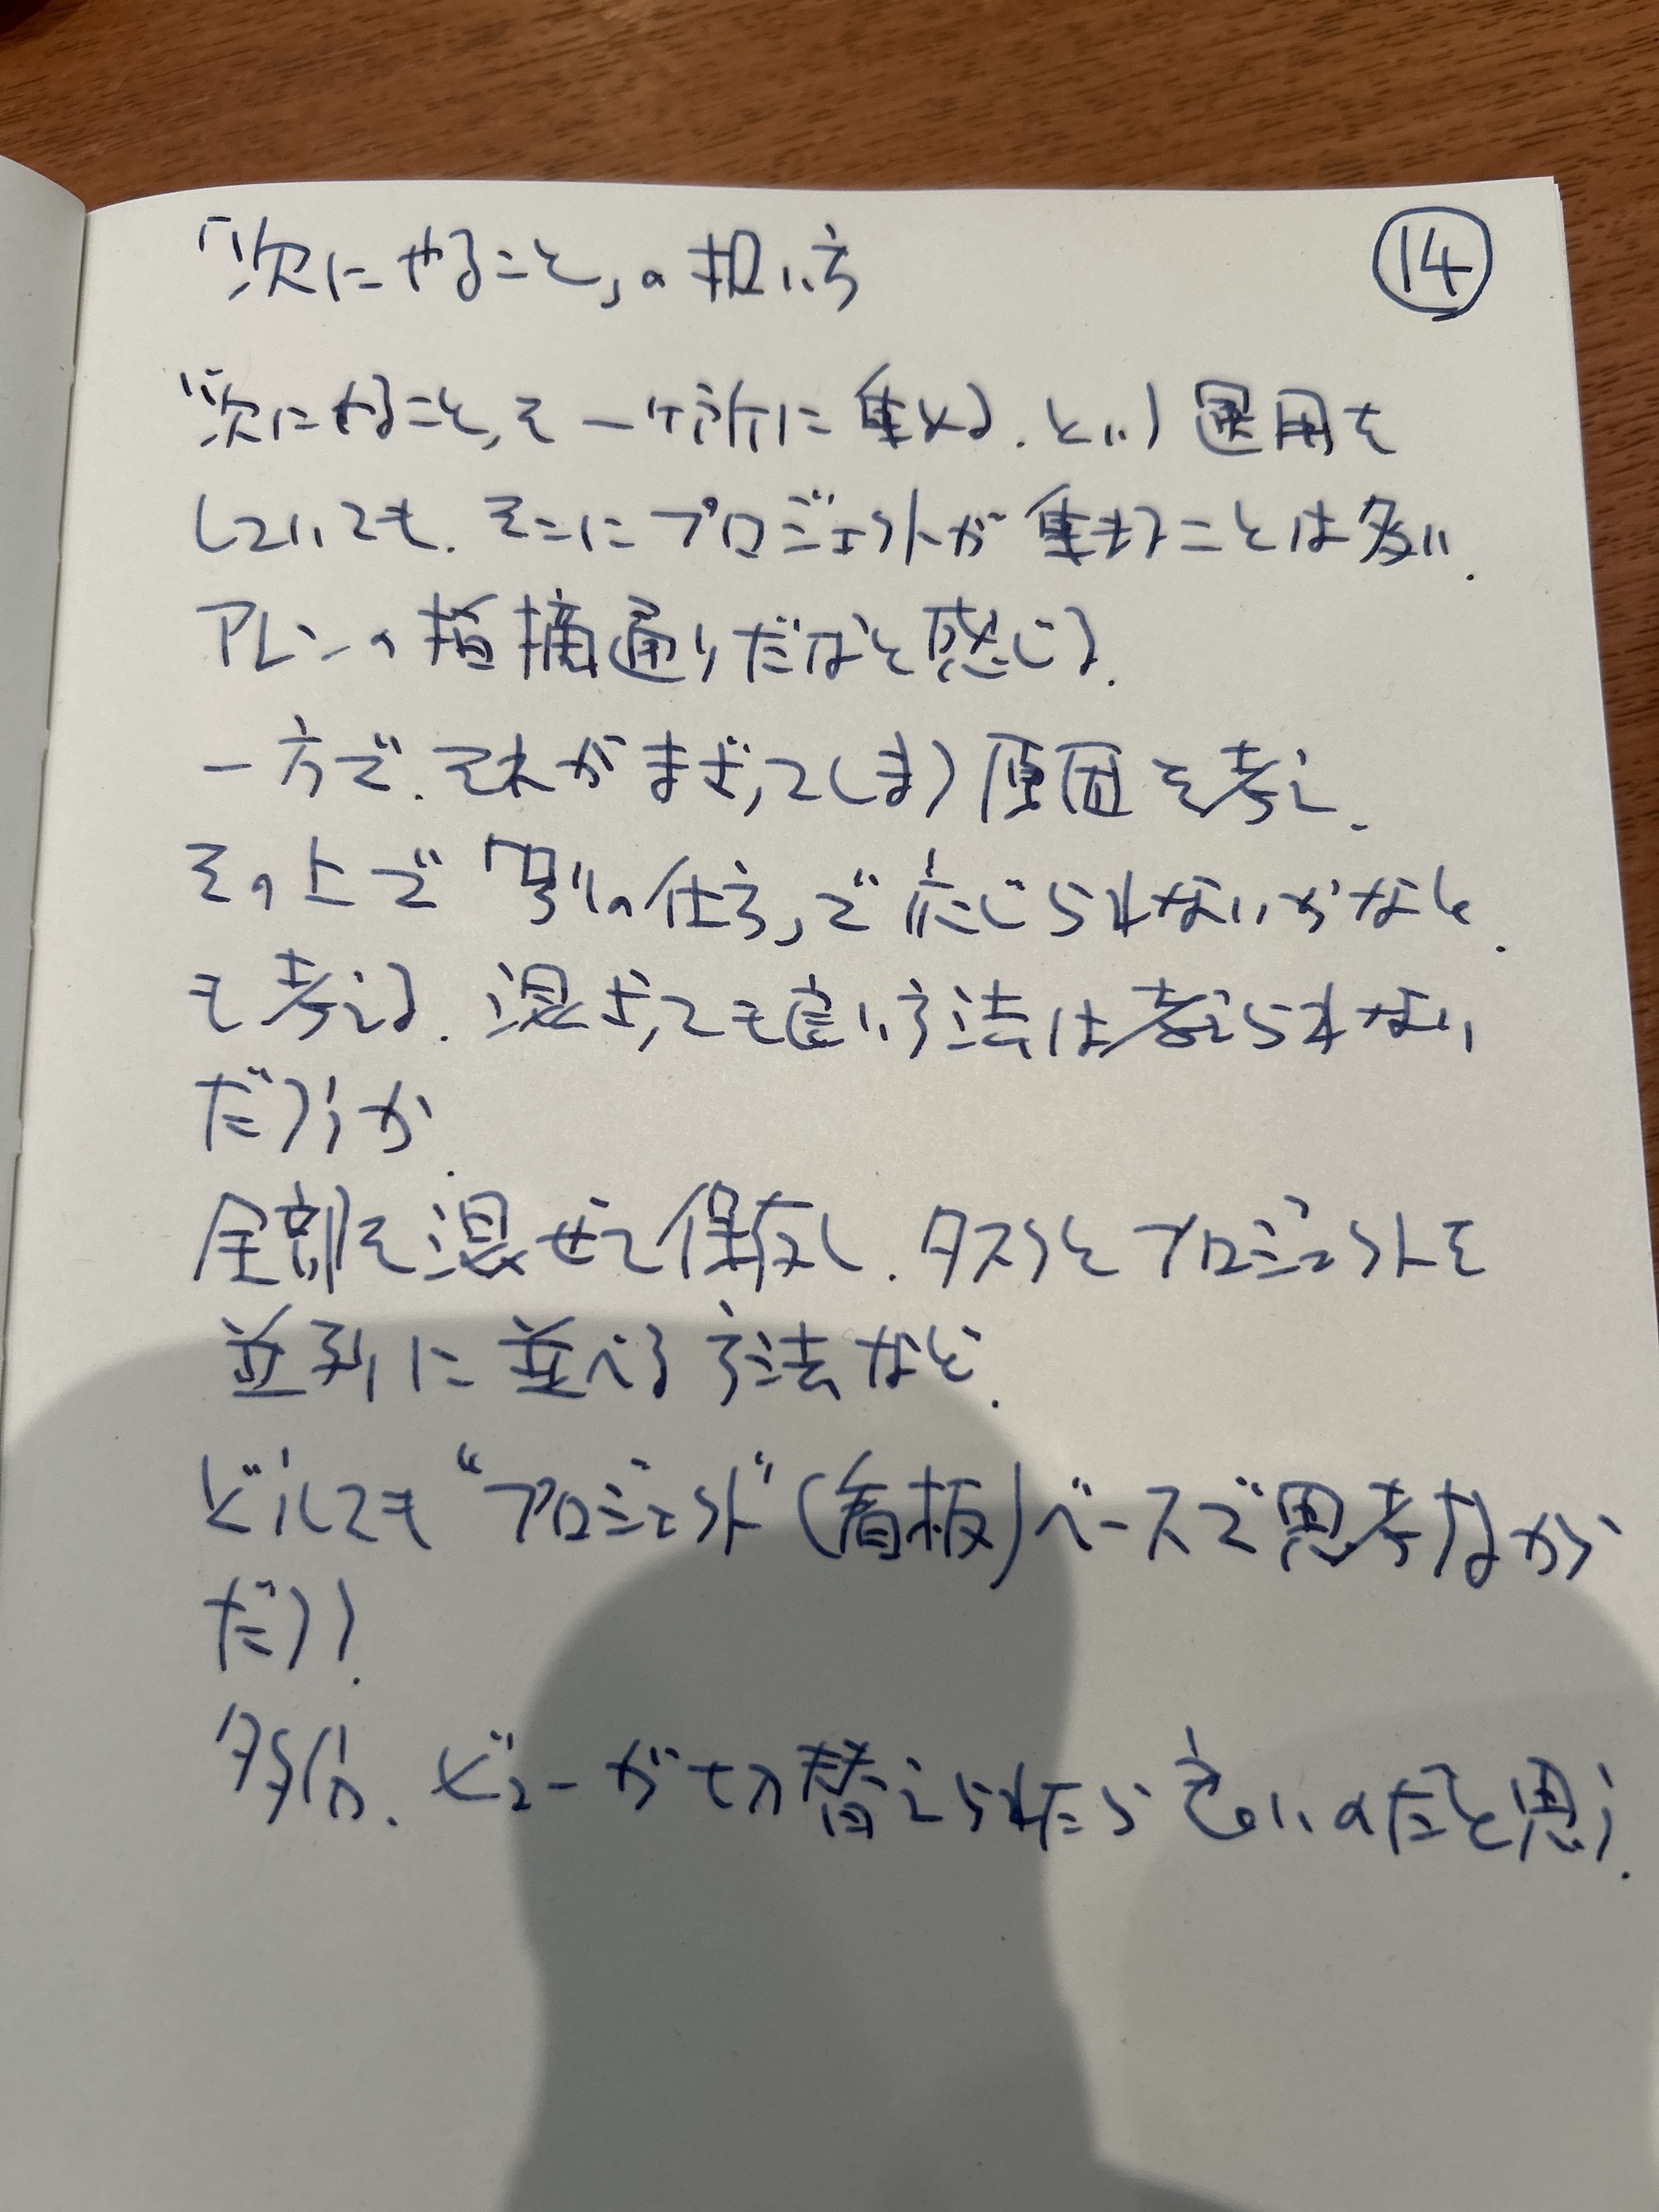 「次にやること」の扱い方
⑭
「次にやること」を一ヶ所に集める、という運用を
していても、そこにプロジェクトが集まることは多い。
アレンの指摘通りだなと感じる。
一方で、それがまざってしまう原因を考え、
その上で「別の仕方」で応じられないかなと
も考える。混ざっても良い方法は考えられない
だろうか。
全部を混ぜて保存し、タスクとプロジェクトを
並列に並べる方法など。
どうしても“プロジェクト”(看板)ベースで思考なが
だろう。
多分、ビューが切替えられたら良いのだと思う。